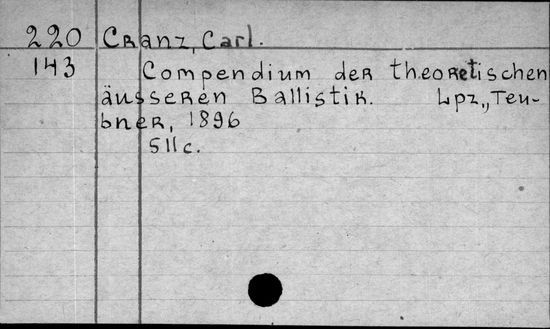 220 Cranz, Carl.
143 Compendium der theoretischen
äusseren Ballistik. Lpz., Teu-
bner, 1896
511 c.